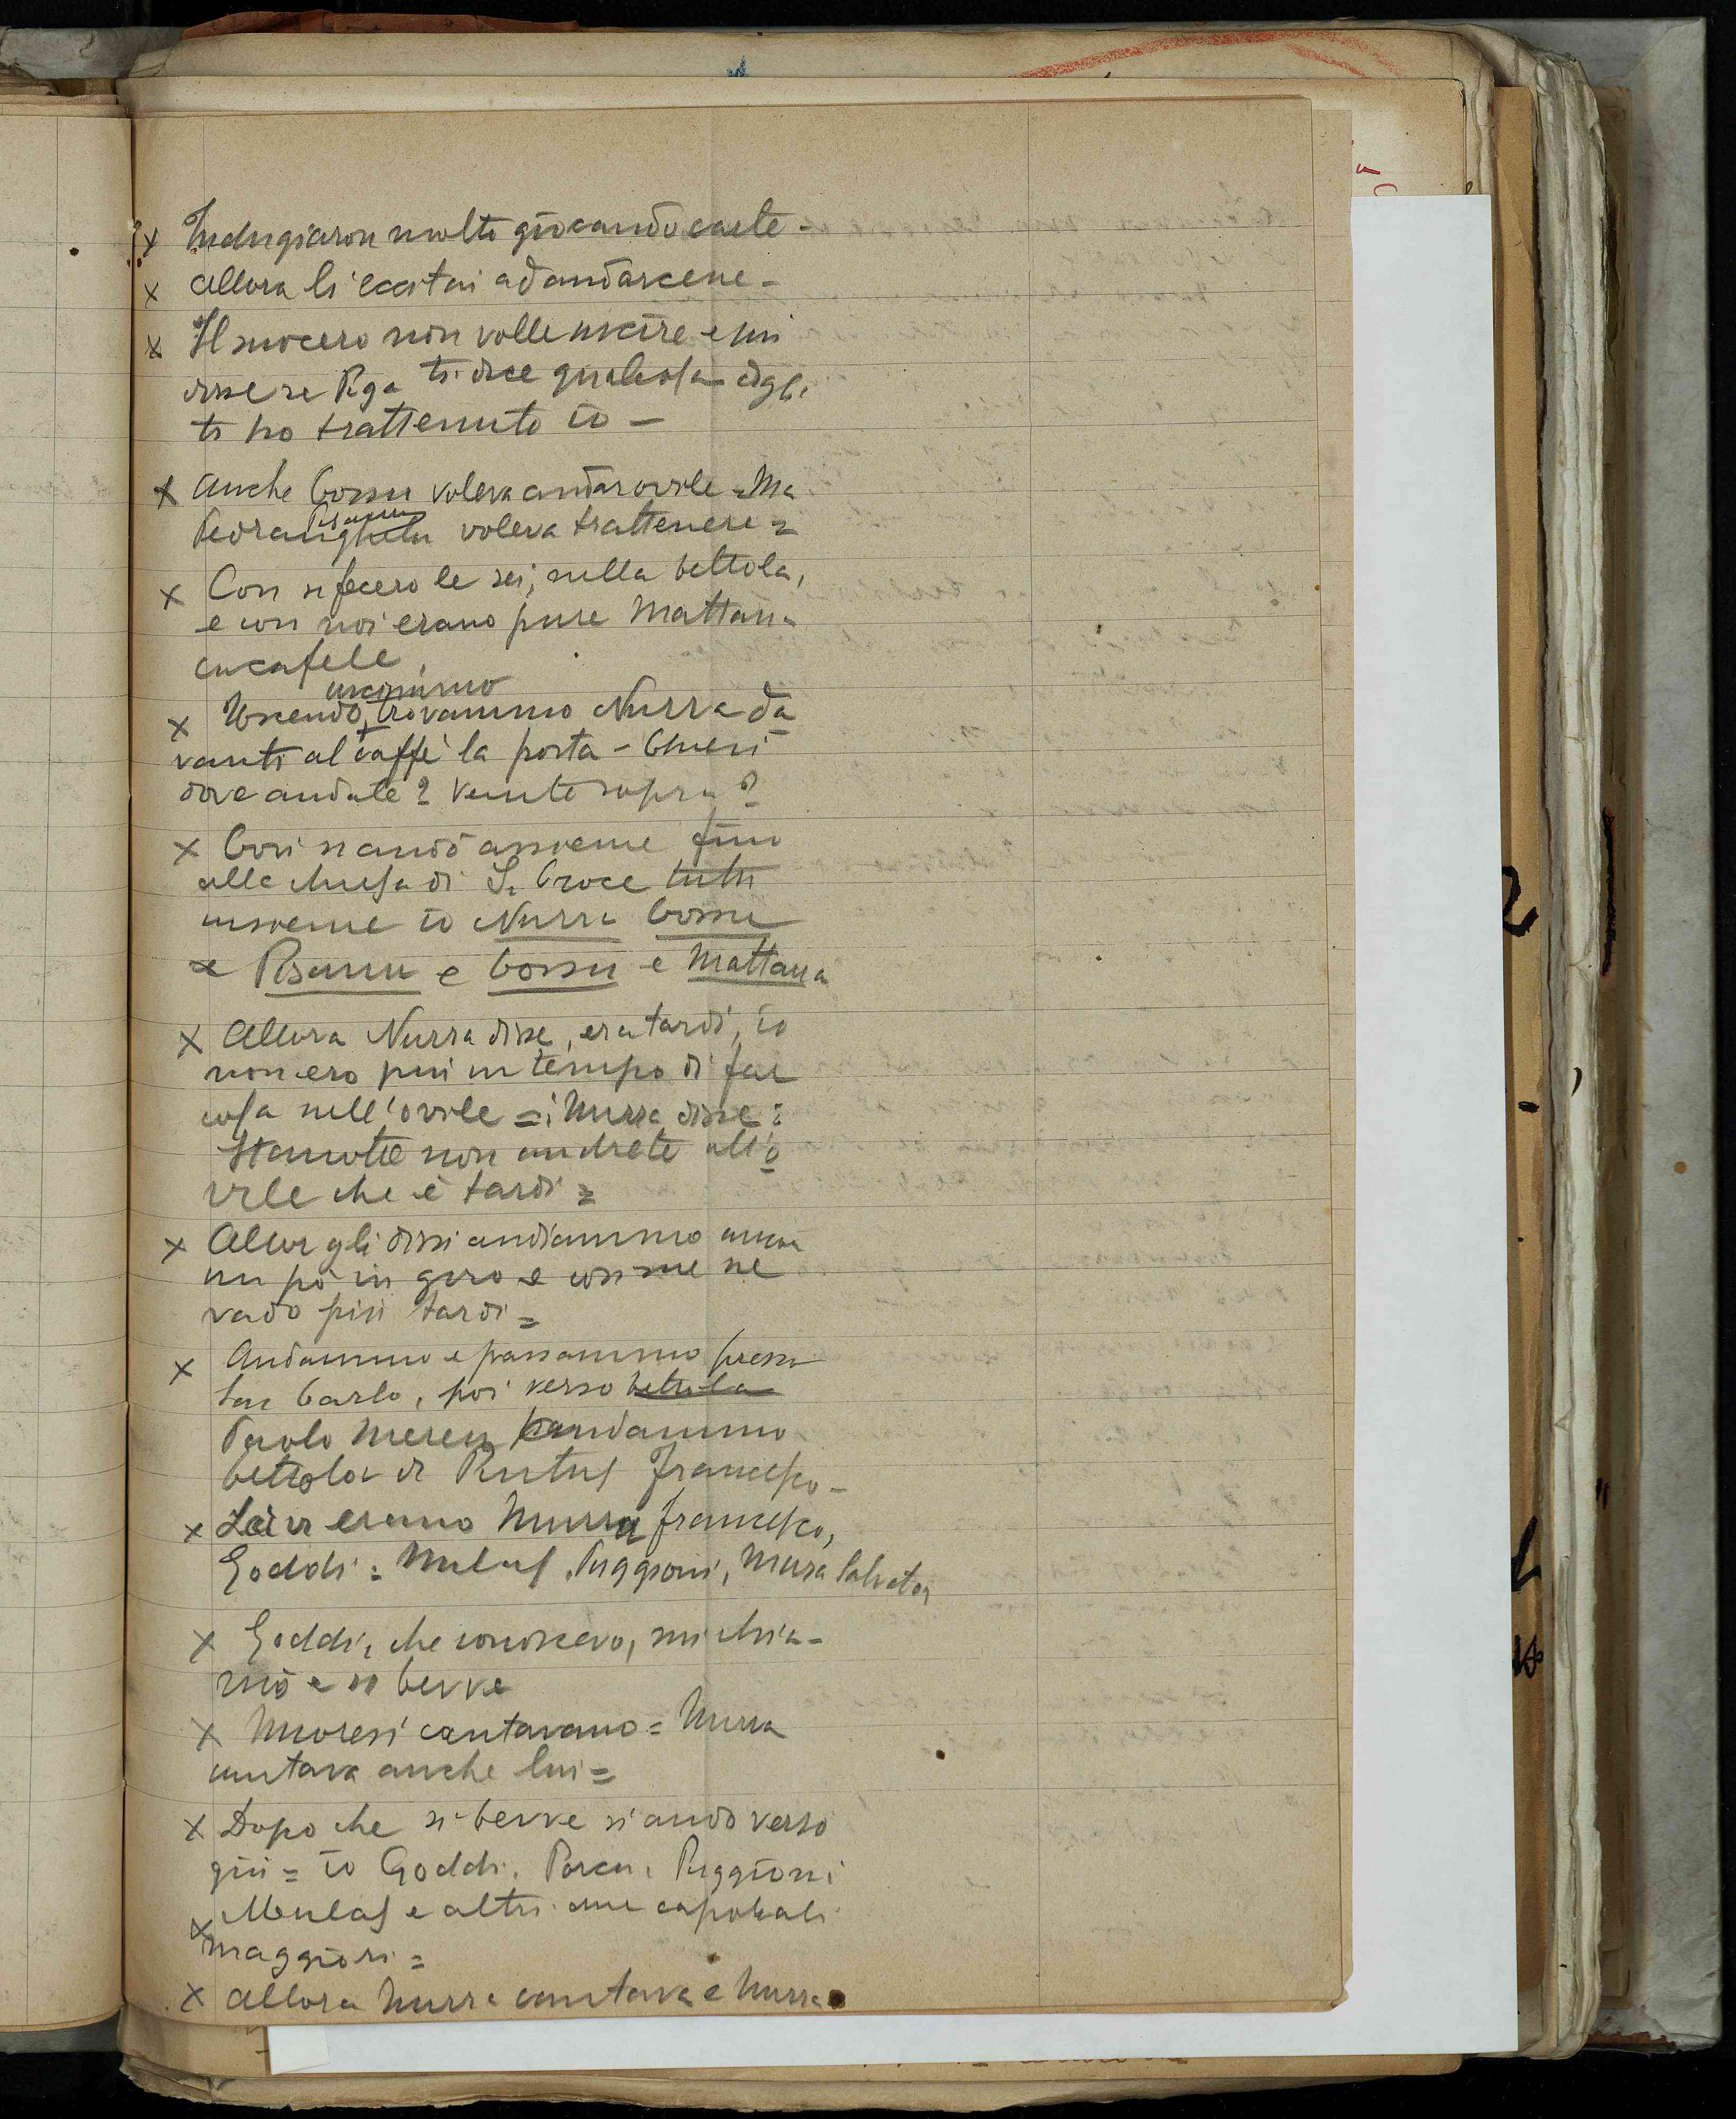 x Indugiaron molto giocando carte -
x allora li eccitai ad andarcene -
x Il suocero non volle uscire e mi
disse se Piga ti dice qualcosa digli
ti ho trattenuto io -
x anche Corsu voleva andar ovile = Ma
Pisanu voleva trattenere =
x Così si fecero le sei, nella bettola,
e con noi erano pure Mattana
uscimmo
x Uscendo, trovammo Nurra da
vanti al caffè la porta -
dove andate? venite sopra?
x Così si andò assieme fino
alla chiesa di S. Croce tutti
insieme io Nurra Corsu
e Pisanu e Corsu e Mattana
x Allora Nurra disse, era tardi, io
non ero più in tempo di far
cosa nell'ovile = Nurra disse:
stanotte non andrete all'o
vile che è tardi =
x Allor gli dissi andiammo ancor
un pò in giro e così me ne
vado più tardi =
x Andammo e passammo presso
San Carlo, poi verso bettola
Paolo Mereu andammo
bettola di Francesco -
x Lì vi erano Murru Francesco,
Goddi = Mulas, Puggioni, Mura Salvator
x Goddi, che conoscevo, mi chia-
mò e si bevve
x Nuoresi cantavano = Nurra
cantava anche lui =
x Dopo che si bevve si andò verso
giù = io Goddi, Porcu, Puggioni
x Mulas e altri due caporali
maggiori =
x allora Nurra cantava e Nurra